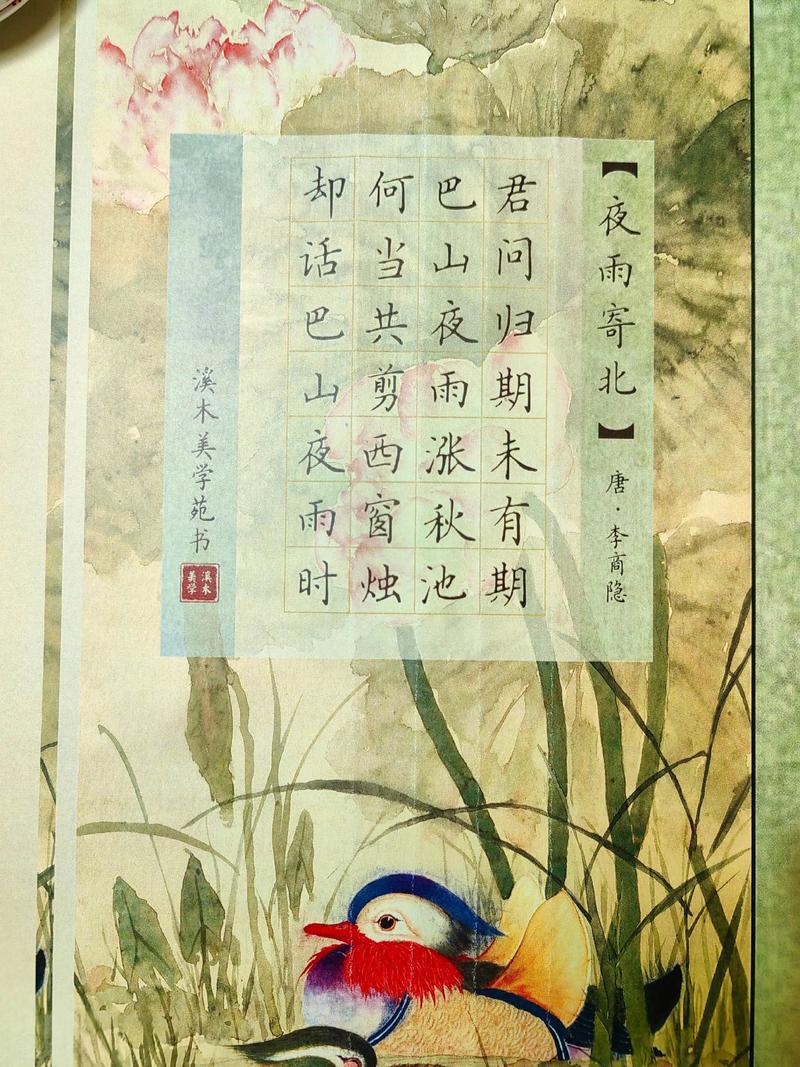 【夜雨寄北】 唐·李商隐
君问归期未有期
巴山夜雨涨秋池
何当共剪西窗烛
却话巴山夜雨时
溪木美学苑书
溪木
美学